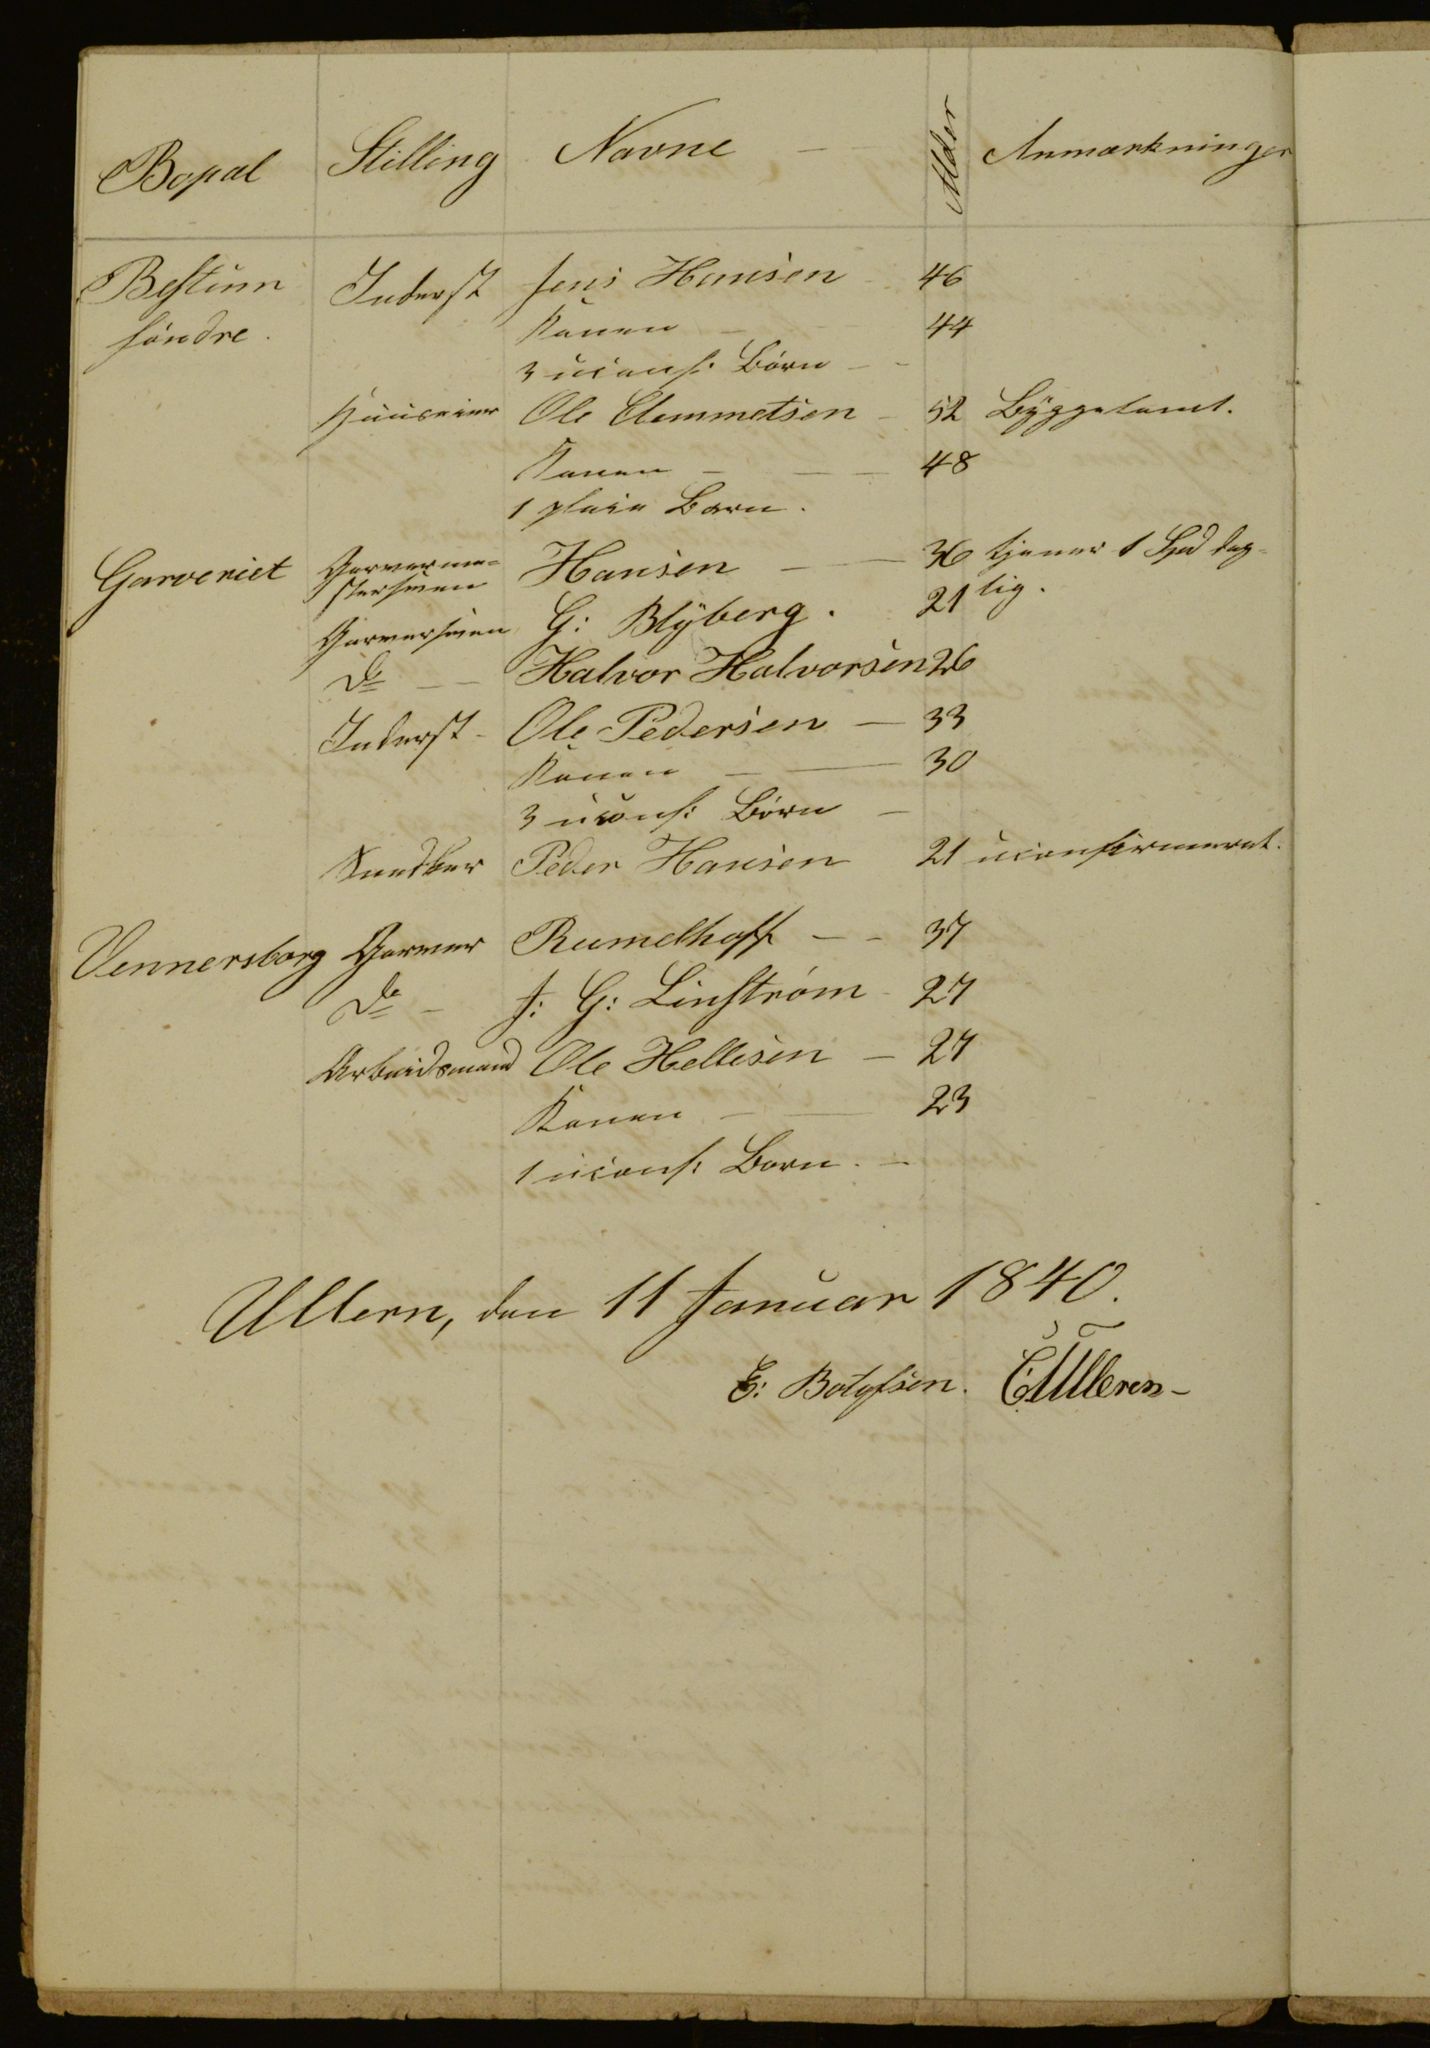 Bopal Stilling Navne — Alder Anmærkninger
Bestum Inderst Jens Hansen 46
søndre. Konen — 44
3 uconf: Børn — -
Huuseier Ole Clemmetsen - 52 Byggetomt.
Konen — — — 48
1 Barn.
Garveriet Garverme-
stersven Hansen — — 36 tjener 1 Spd dag-
lig.
Garversven G: Blyberg . 21
Do — — Halvor Halvorsen 26
Inderst - Ole Pedersen — 33
Konen — — 30
3 uconf: Børn —
Peder Hansen 21 uconfirmeret.
Vennersborg Garver Rumelhoff — - 37
Do - J: G: Linström - 27
Arbeidsmand Ole Hellesen — 27
Konen — — 23
1 uconf: Barn. —
Ullern, den 11 Januar 1840.
E: Botolfsen. CUllern-